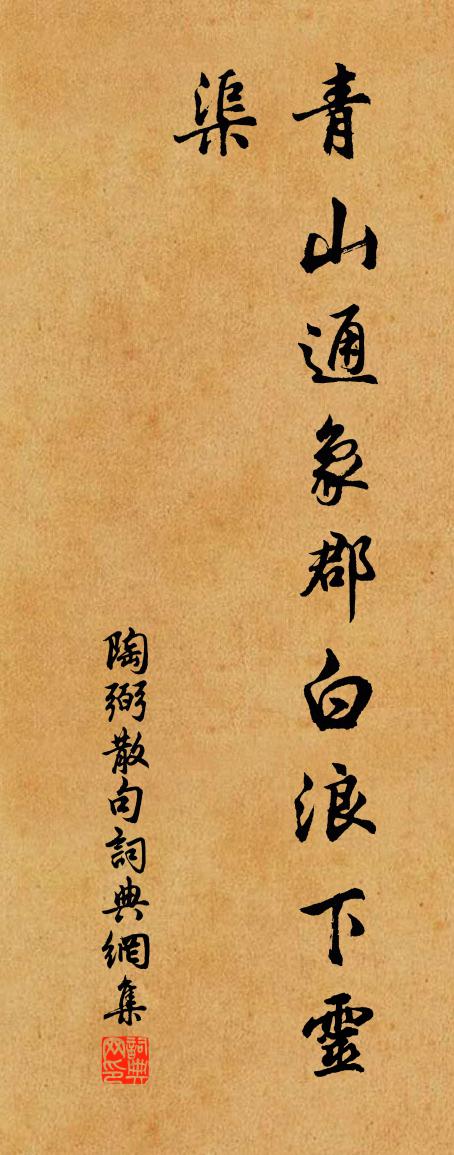 青山通象郡白浪下靈
渠
陶弼散句詞典網集
詞典网印